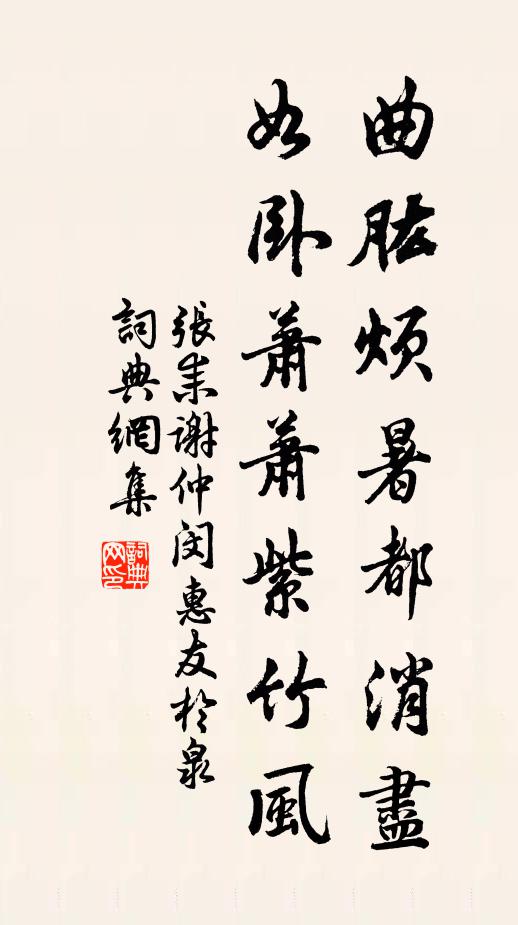 曲肱煩暑都消盡
如卧蕭蕭紫竹風
張耒謝仲閔惠友於泉
詞典網集
詞典網印